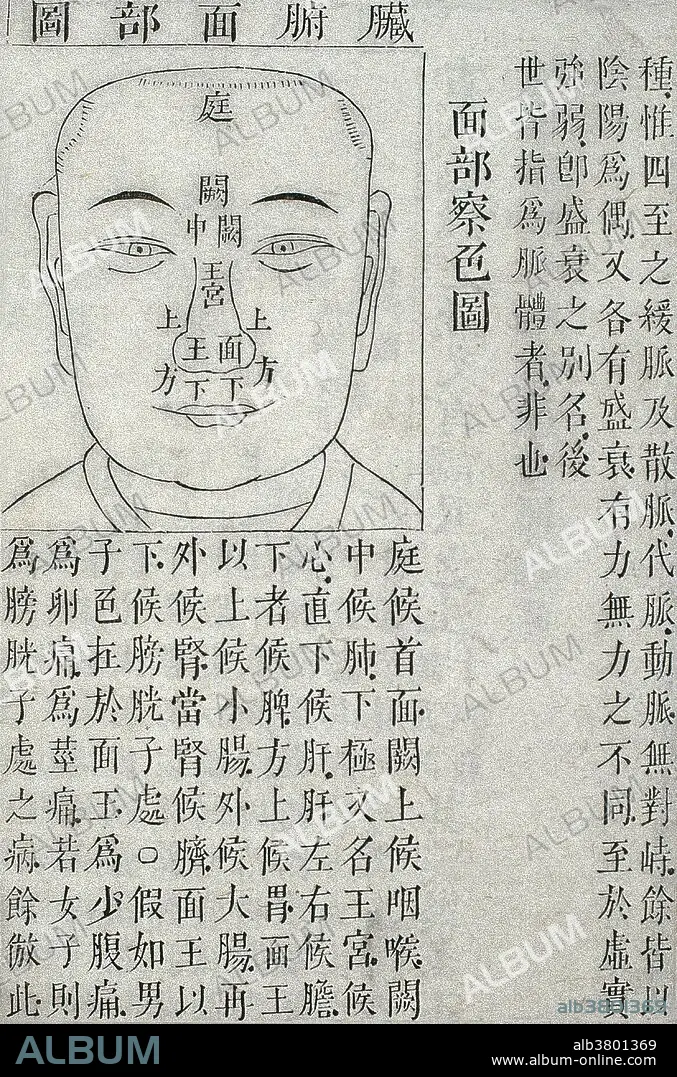 種、惟四至之緩脈及散脈、代脈、動脈、無對峙、餘皆以
陰陽爲偶、又各有盛衰、有力無力之不同、至於虛實
強弱、卽盛衰之別名、後
世皆指爲脈體者、非也、
面部察色圖
臟腑面部圖
庭
闕
闕中
王宮
上 上
面王
方 方
下 下
庭候首面、闕上候咽喉、闕
中候肺、下極又名王宮、候
心、直下候肝、肝左右候膽、
下者候脾、方上候胃、面王
以上候小腸、外候大腸、再
外候腎、當腎候臍、面王以
下、候膀胱子處、○假如男
子色在於面王、爲少腹痛、
爲卵痛、爲莖痛、若女子則
爲膀胱子處之病、餘倣此、
ALBUM
alb3801369
ALBUM
alb3801369
www.album-online.com